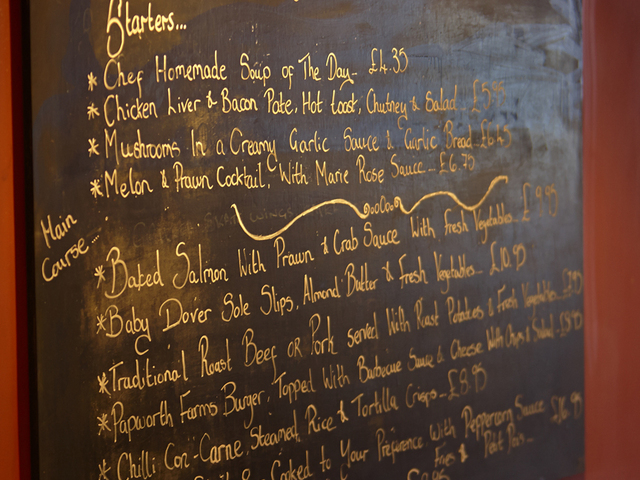 Starters...
* Chef Homemade Soup of The Day- £4.35
* Chicken Liver & Bacon Pate, Hot toast, Chutney & Salad £5.95
* Mushrooms In a Creamy Garlic Sauce & Garlic Bread £6.45
* Melon & Prawn Cocktail, With Marie Rose Sauce - £6.70
Main Course...
* Baked Salmon With Prawn & Crab Sauce With Fresh Vegetables... £9.95
* Baby Dover Sole Slips, Almond Butter & Fresh Vegetables... £10.95
* Traditional Roast Beef or Pork served With Roast Potatoes & Fresh Vegetables... £7.95
* Papworth Farms Burger, Topped With Barbecue Sauce & Cheese With Chips & Salad
* Chilli Con-Carne, Steamed Rice & Tortilla Crisps - £8.95
Cooked to Your Preference With Peppercorn Sauce
Fries & Petit Pois... £16.95